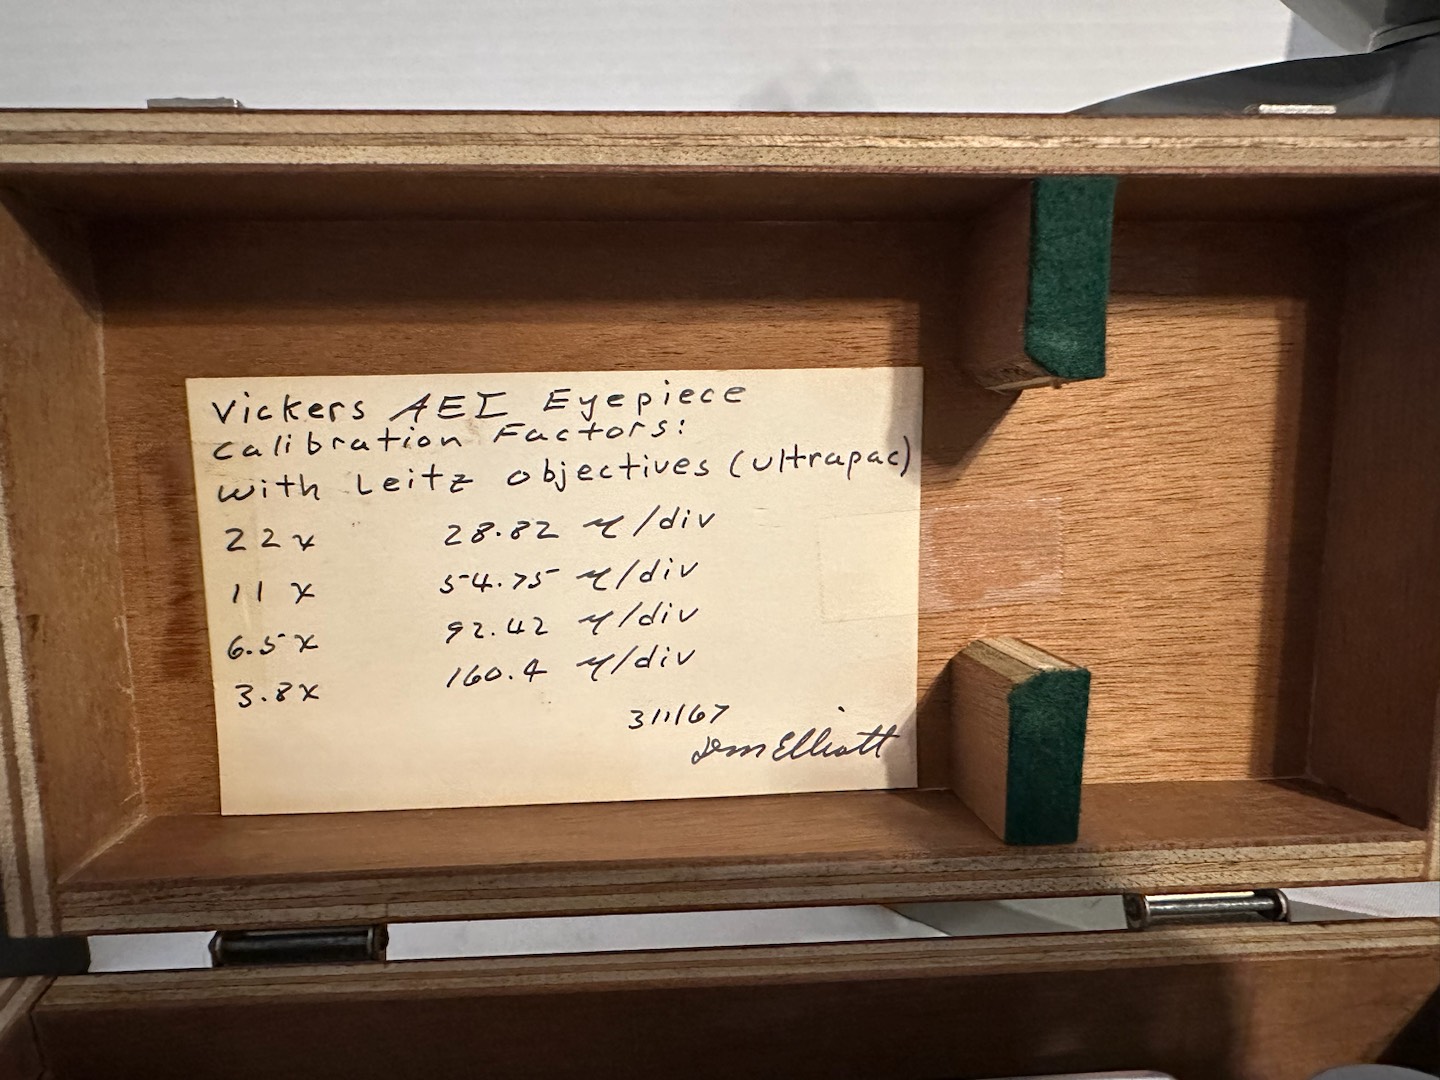 Vickers AEI Eyepiece
Calibration Factors:
with Leitz objectives (ultrapac)
22x 28.82 μ/div
11 x 54.75 μ/div
6.5x 92.42 μ/div
3.8x 160.4 μ/div
Elliott